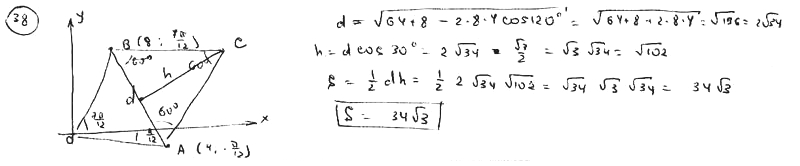 38
y
B (8; 7π/12)
C
60°
60°
h
d
60°
7π/12
x
0
π/12
A (4, -π/12)
d = √64+8 - 2·8·4 cos120° = √64+8+2·8·4 = √136 = 2√34
h = d cos 30° = 2√34 · √3/2 = √3 √34 = √102
S = 1/2 dh = 1/2 2 √34 √102 = √34 √3 √34 = 34√3
S = 34√3